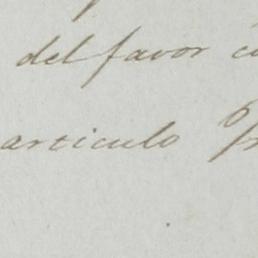 del favor
articulo